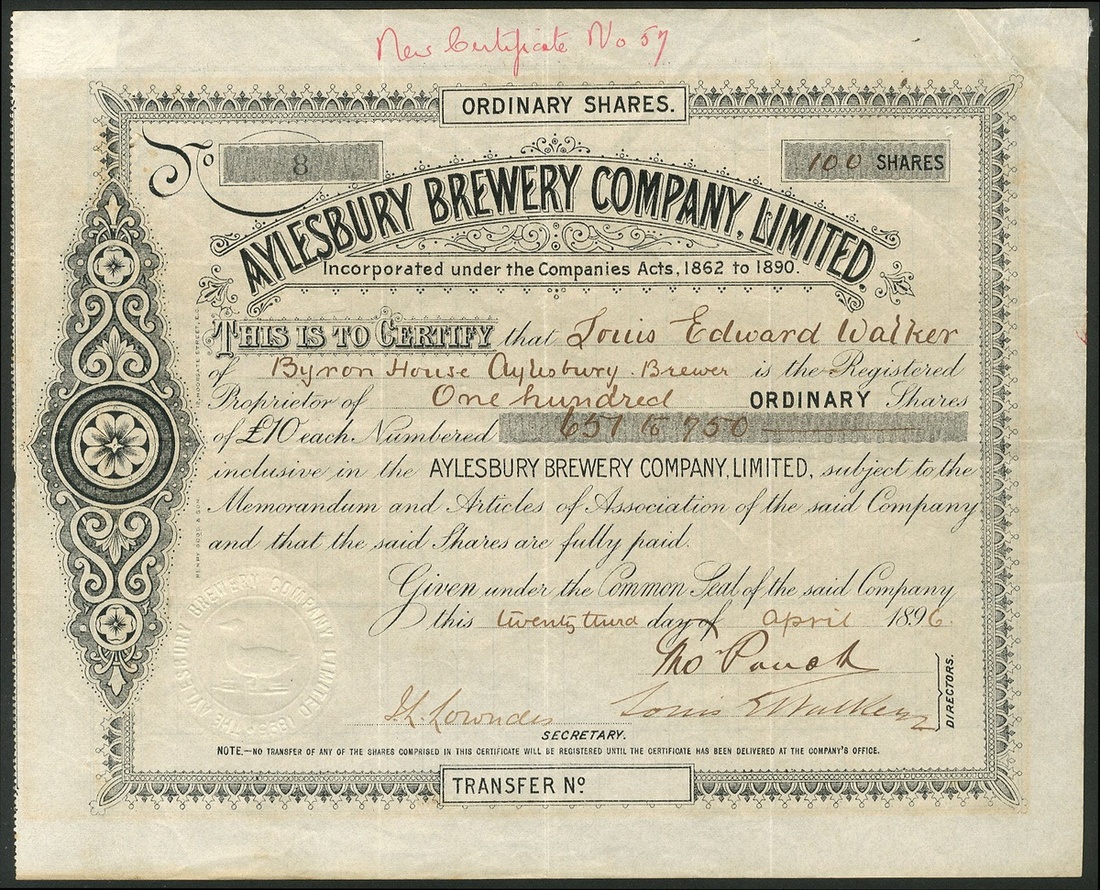 New Certificate No 57
ORDINARY SHARES.
No 8
100 SHARES
AYLESBURY BREWERY COMPANY, LIMITED.
Incorporated under the Companies Acts, 1862 to 1890.
THIS IS TO CERTIFY that Louis Edward Walker
of Byron House Aylesbury. Brewer is the Registered
Proprietor of One hundred ORDINARY Shares
of £10 each Numbered 651 to 750
inclusive in the AYLESBURY BREWERY COMPANY, LIMITED, subject to the
Memorandum and Articles of Association of the said Company
and that the said Shares are fully paid.
Given under the Common Seal of the said Company
this twenty third day of April 1896.
THE AYLESBURY BREWERY COMPANY LIMITED 1895
Louis E Walker
DIRECTORS.
Lowndes
SECRETARY.
NOTE.—NO TRANSFER OF ANY OF THE SHARES COMPRISED IN THIS CERTIFICATE WILL BE REGISTERED UNTIL THE CERTIFICATE HAS BEEN DELIVERED AT THE COMPANY'S OFFICE.
TRANSFER No.